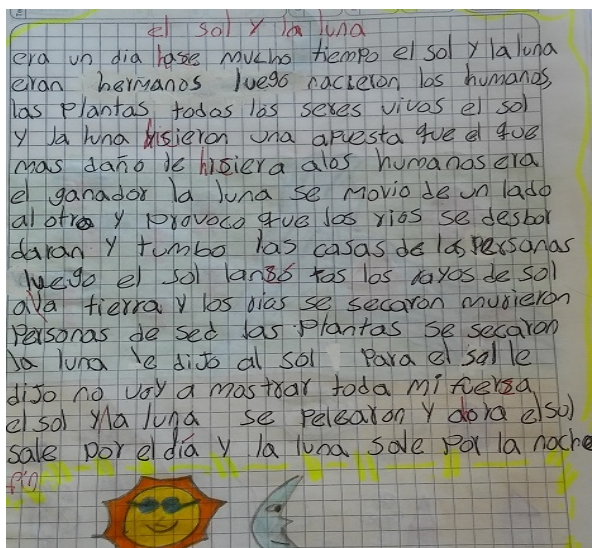 el sol y la luna
era un dia hase mucho tiempo el sol y la luna
eran hermanos luego nacieron los humanos,
las plantas todos los seres vivos el sol
y la luna hisieron una apuesta que el que
mas daño le hisiera alos humanos era
el ganador la luna se movio de un lado
al otro y provoco que los rios se desbor
daran y tumbo las casas de las personas
luego el sol lansó tos los rayos de sol
a la tierra y los rios se secaron murieron
personas de sed las plantas se secaron
la luna le dijo al sol para el sol le
dijo no voy a mostrar toda mi fuersa
el sol y la luna se pelearon y aora el sol
sale por el día y la luna sale por la noche
fin